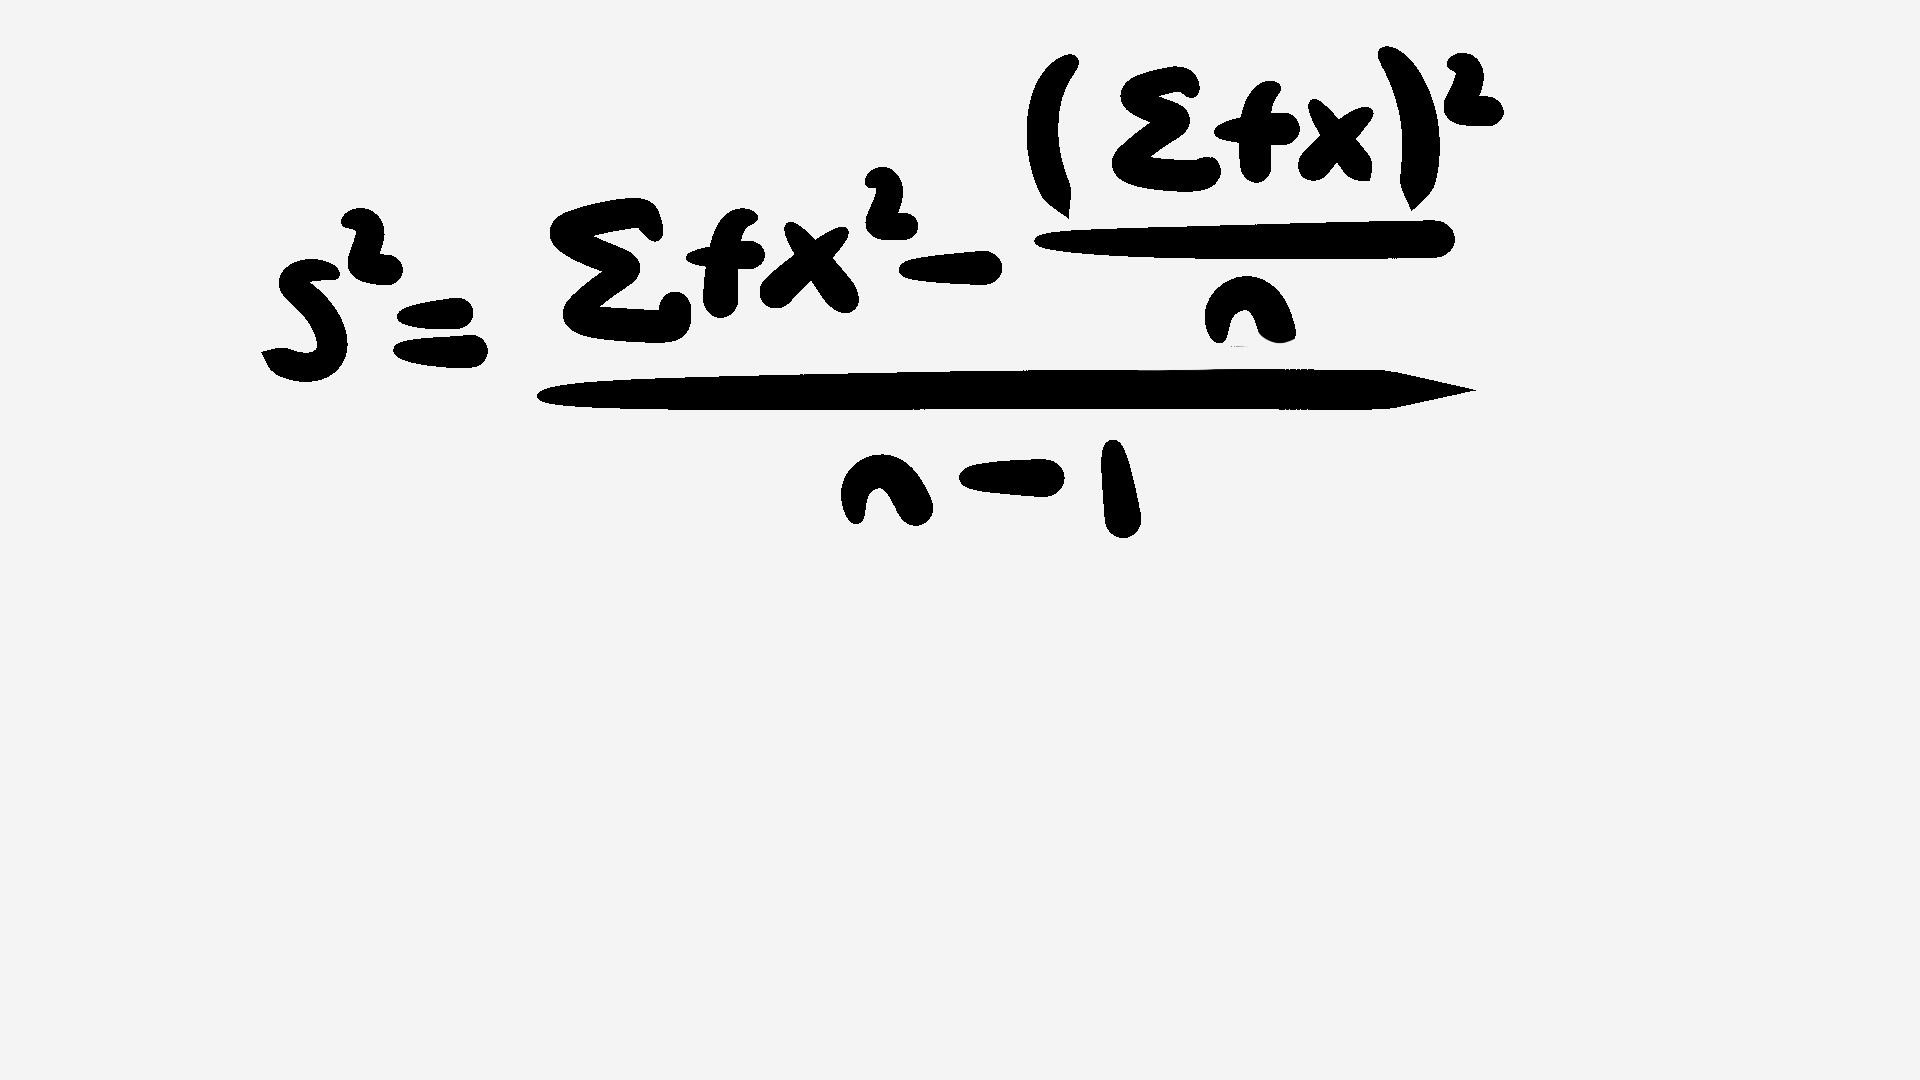 s² = (Σfx² - (Σfx)² / n) / (n - 1)